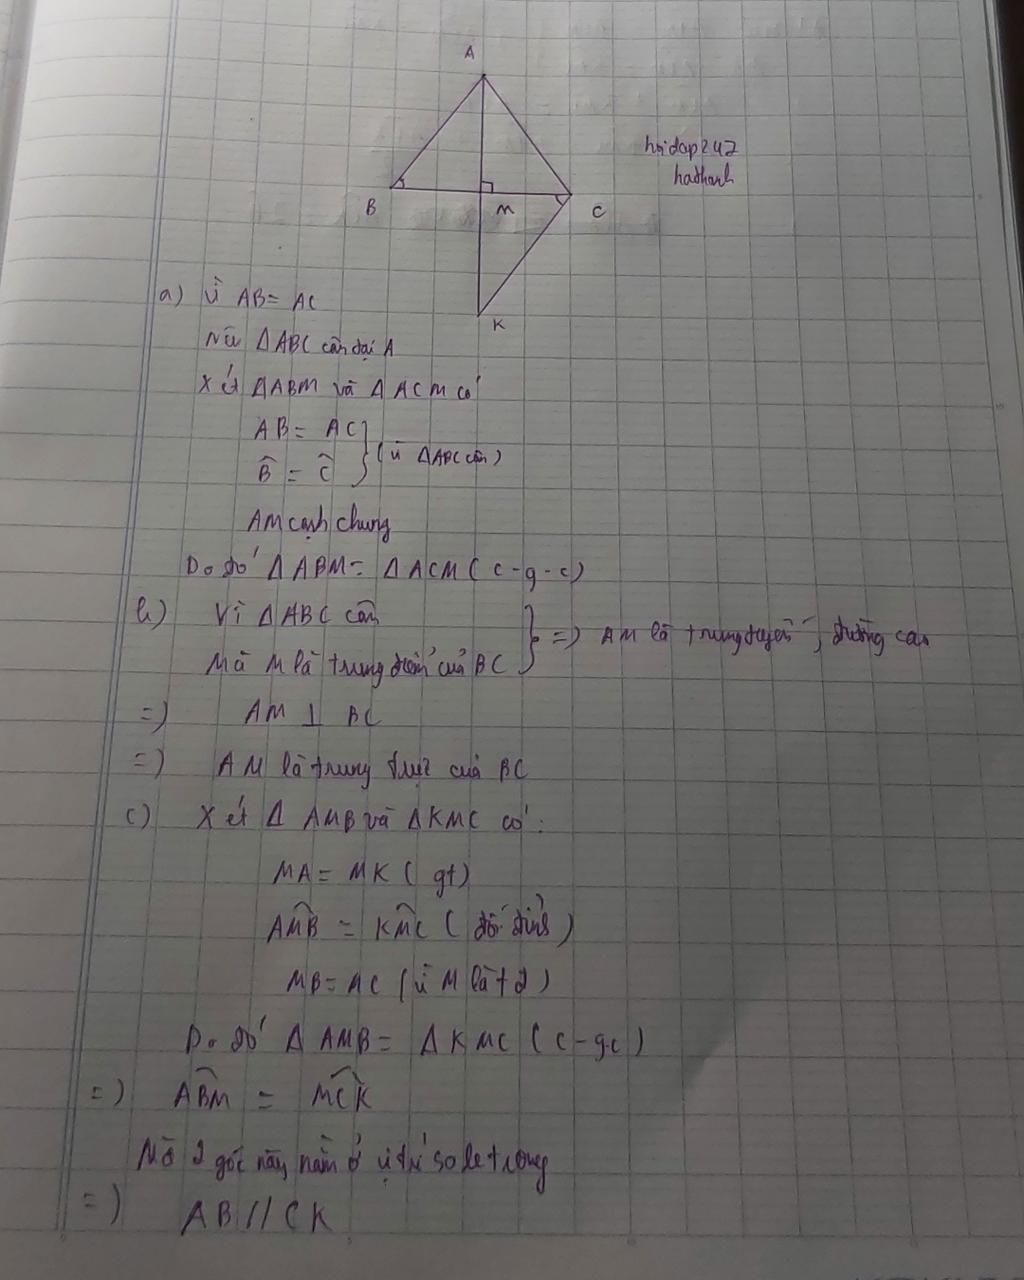 A
hoidap247
hathanh
B
M
C
K
a) Vì AB = AC
Nên ΔABC cân tại A
Xét ΔABM và ΔACM có
AB = AC } (vì ΔABC cân)
B̂ = Ĉ
AM cạnh chung
Do đó ΔABM = ΔACM (c-g-c)
b) Vì ΔABC cân
Mà M là trung điểm của BC } => AM là trung tuyến, đường cao
=) AM ⊥ BC
=) AM là trung trực của BC
c) Xét Δ AMB và ΔKMC có:
MA = MK (gt)
AM̂B = KM̂C (đối đỉnh)
MB = AC (vì M là tđ)
Do đó Δ AMB = Δ KMC (c-g.c)
=) AB̂M = MĈK
Mà 2 góc này nằm ở vị trí so le trong
=) AB // CK